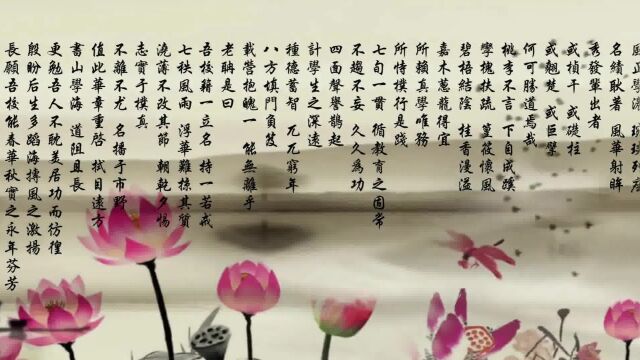 名績耿著 風華射眸
秀發輩出者
或楨干 或礎柱
或翹楚 或巨擘
何可勝道焉哉
桃李不言 下自成蹊
孿槐扶疏 篁筱懷風
碧梧結陰 桂香漫溢
嘉木蔥蘢得宜
所賴真學唯務
所恃樸行是踐
七旬一貫 循教育之固常
不趨不妄 久久為功
四面聲譽鵲起
計學生之深遠
種德蓄智 兀兀窮年
八方填門負笈
載營抱魄一 能無離乎
老聃是曰
吾校籍一立名 持一若戒
七秩風雨 浮華難掠其質
澆薄不改其節 朝乾夕惕
志實乎樸真
不離不尤 名播于市野
值此華章重啓 拭目遠方
書山學海 道阻且長
更勉吾人不耽美居功而彷徨
殷盼后生多蹈海摶風之激揚
長願吾校能春華秋實之永年芬芳